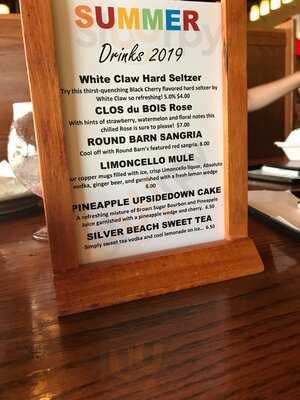 SUMMER
Drinks 2019
White Claw Hard Seltzer
Try this thirst-quenching Black Cherry flavored hard seltzer by
White Claw so refreshing! 5.0% $4.00
CLOS du BOIS Rose
With hints of strawberry, watermelon and floral notes this
chilled Rose is sure to please! $7.00
ROUND BARN SANGRIA
Cool off with Round Barn's featured red sangria. 8.00
LIMONCELLO MULE
copper mugs filled with ice, crisp Limoncello liquor, Absolute
vodka, ginger beer, and garnished with a fresh lemon wedge
8.00
PINEAPPLE UPSIDEDOWN CAKE
A refreshing mixture of Brown Sugar Bourbon and Pineapple
Juice garnished with a pineapple wedge and cherry. 6.50
SILVER BEACH SWEET TEA
Simply sweet tea vodka and cool lemonade on ice... 6.50